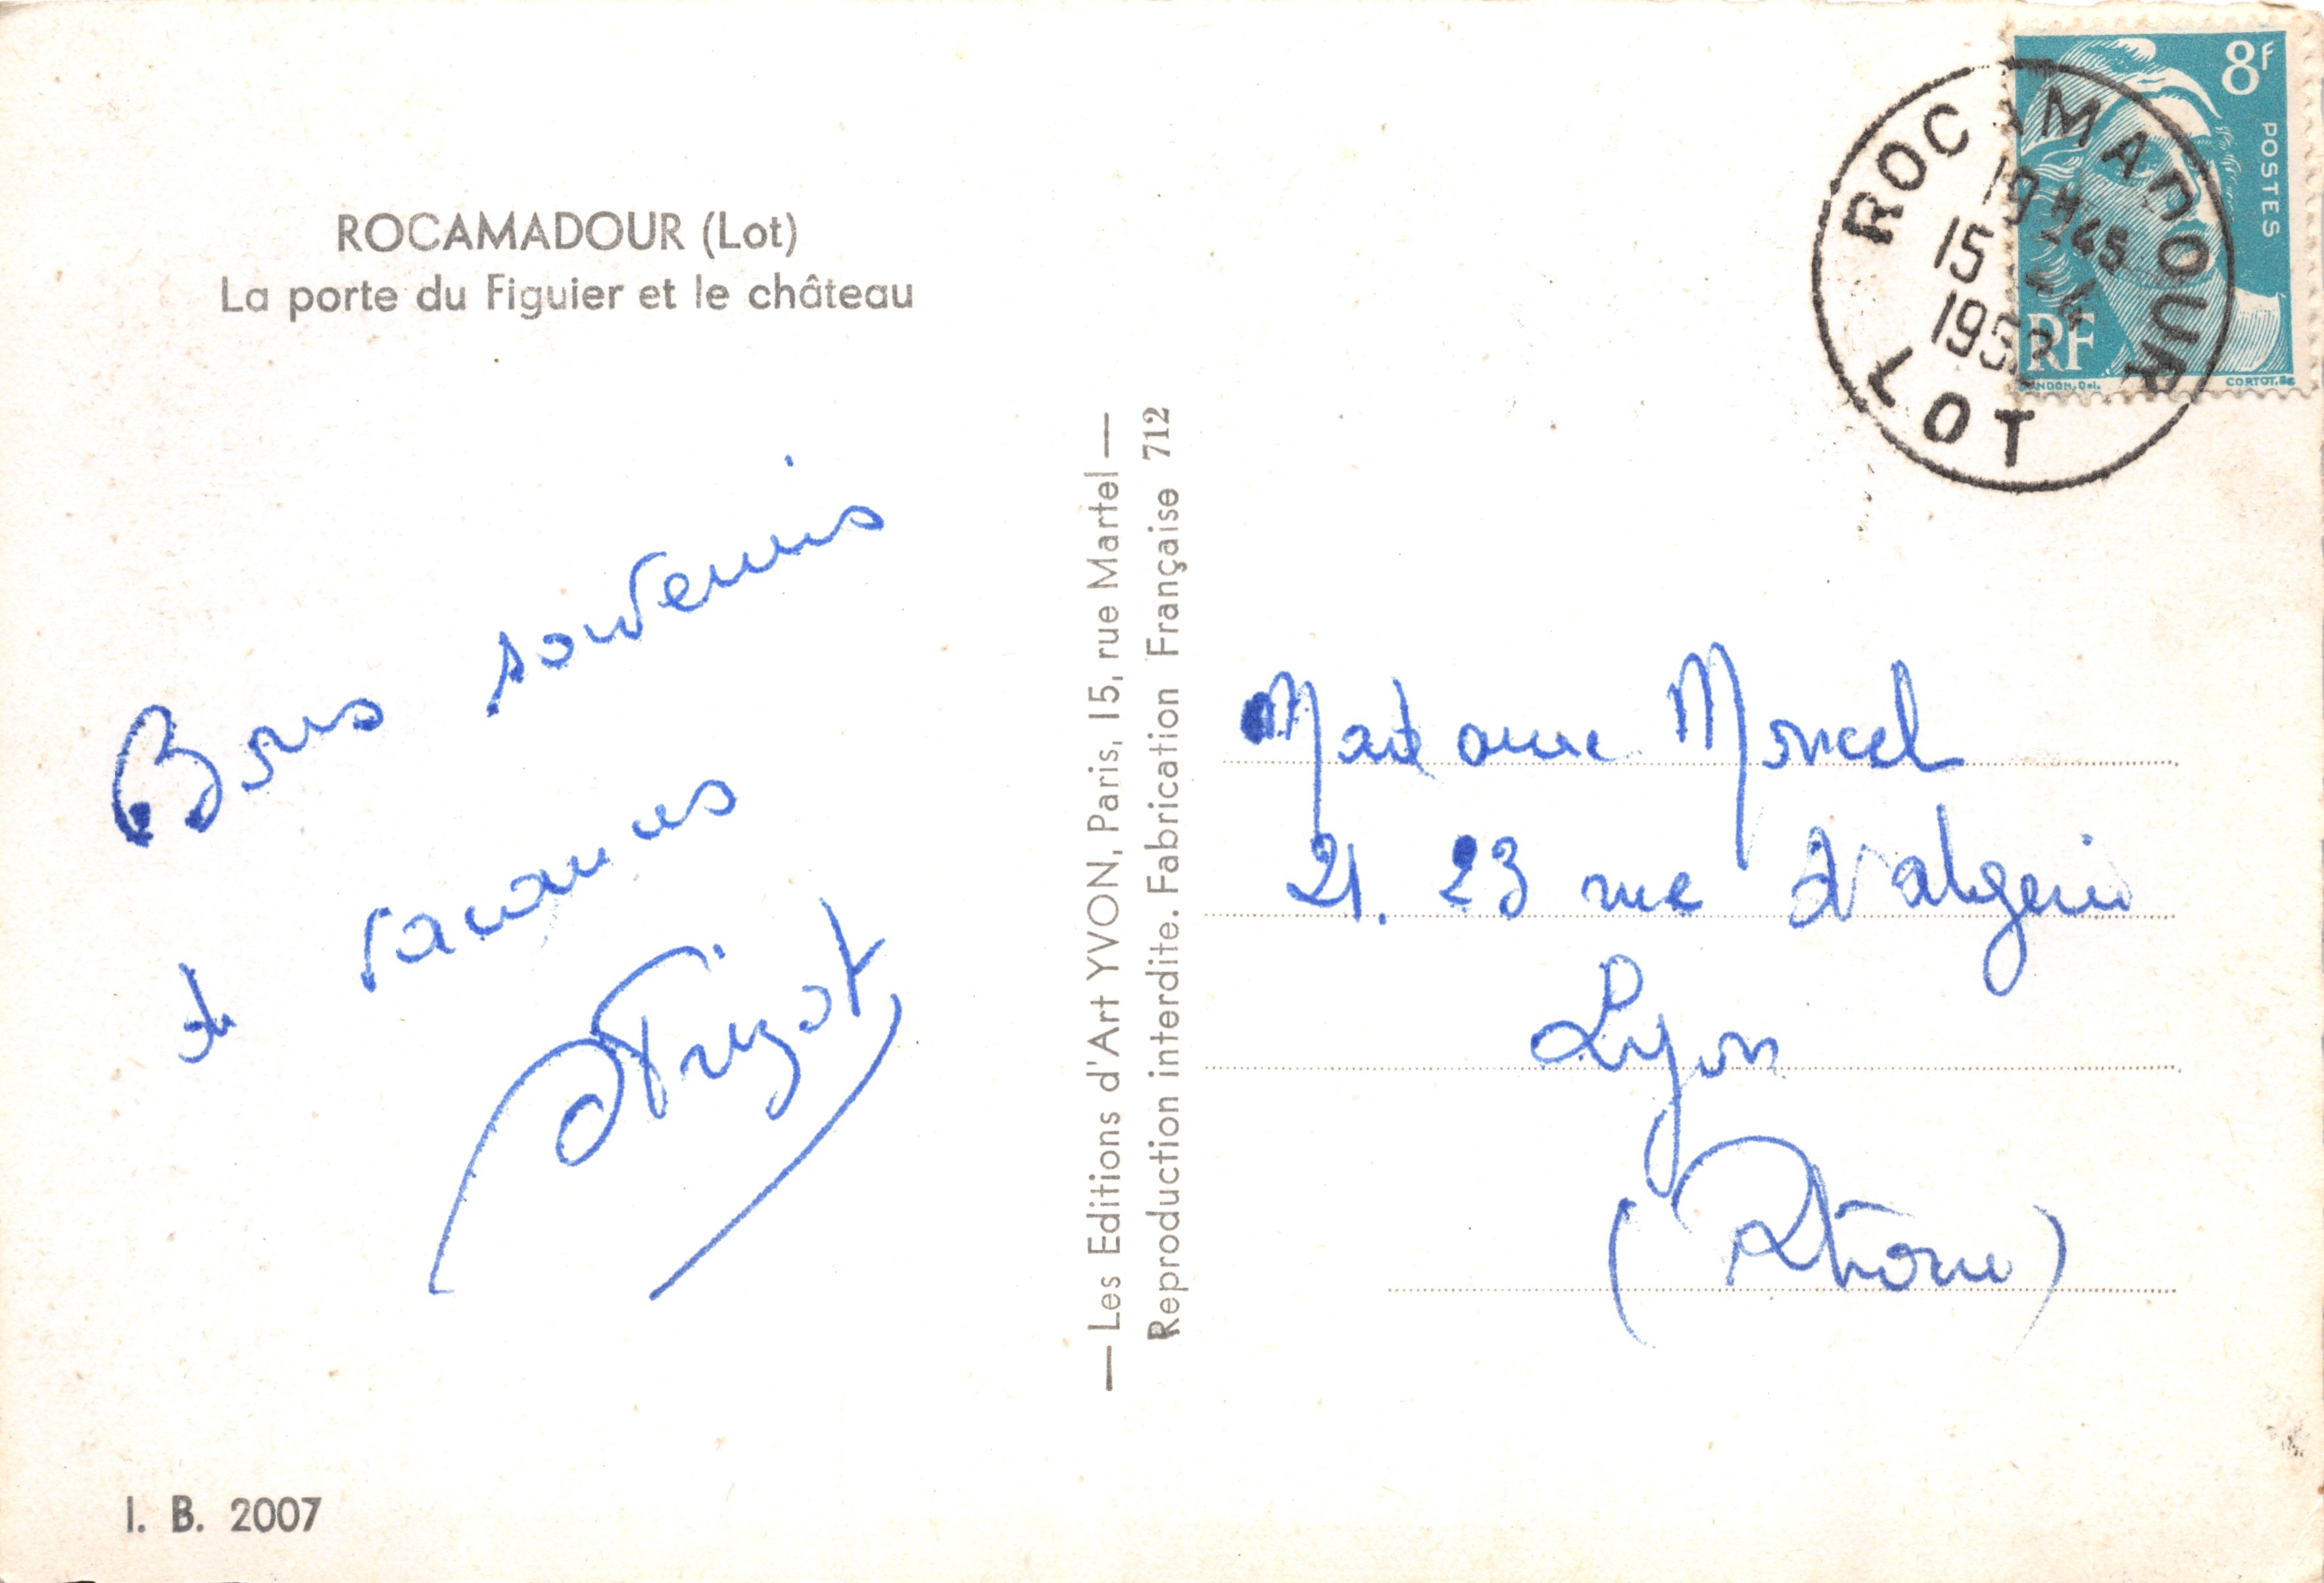 ROCAMADOUR (Lot)
La porte du Figuier et le château
Bons souvenirs
de vacances
I. B. 2007
— Les Editions d'Art YVON, Paris, 15, rue Martel —
Reproduction interdite. Fabrication Française 712
8F
POSTES
RF
CORTOT.
ROCAMADOUR
15
LOT
Madame
21. 23 rue d'algerie
Lyon
(Rhône)